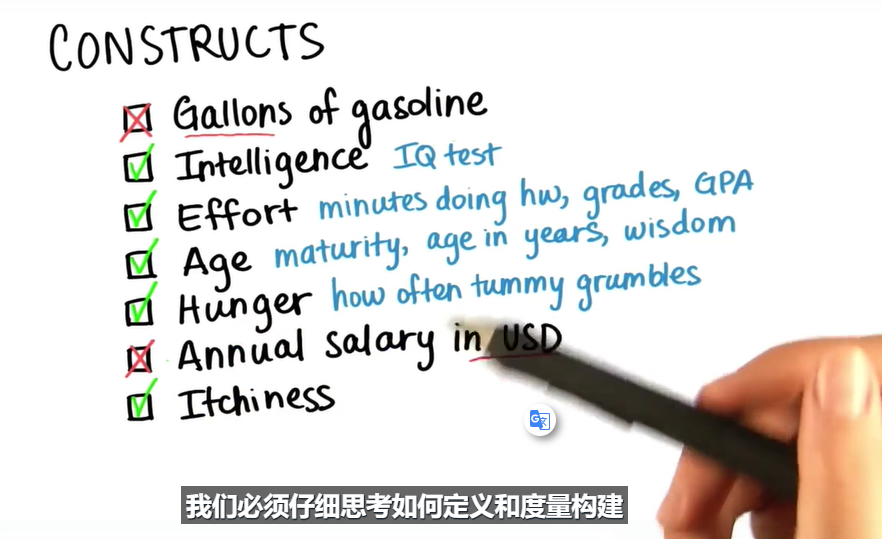 CONSTRUCTS
Gallons of gasoline
Intelligence IQ test
Effort minutes doing hw, grades, GPA
Age maturity, age in years, wisdom
Hunger how often tummy grumbles
Annual salary in USD
Itchiness
G文
我们必须仔细思考如何定义和度量构建